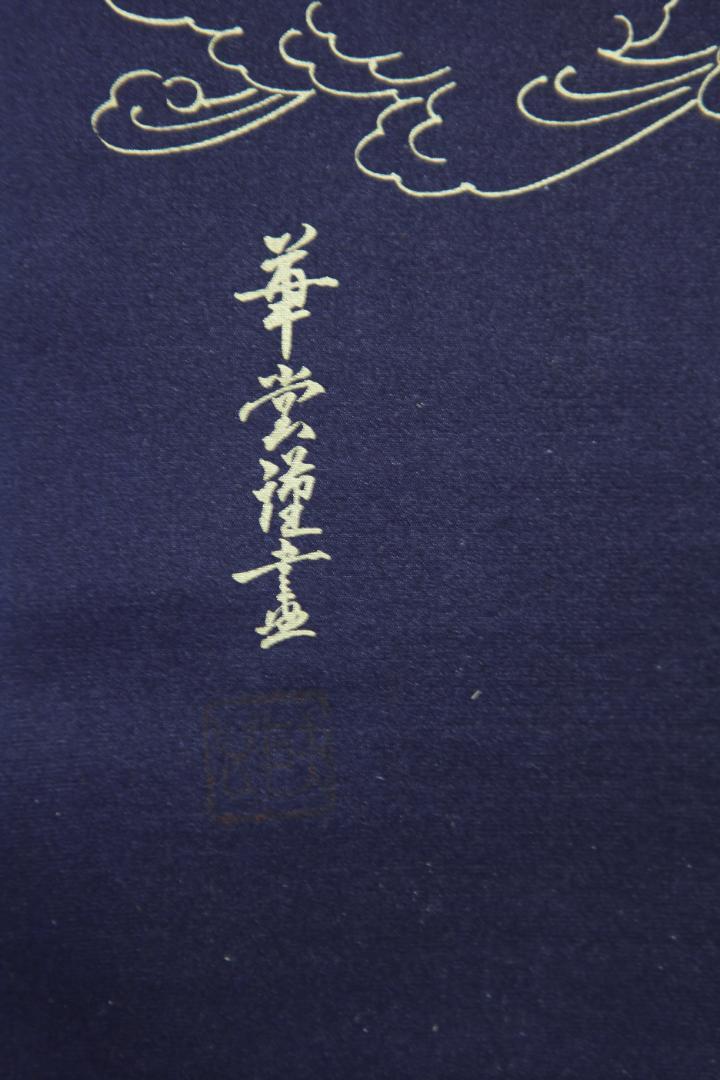 華堂謹畫